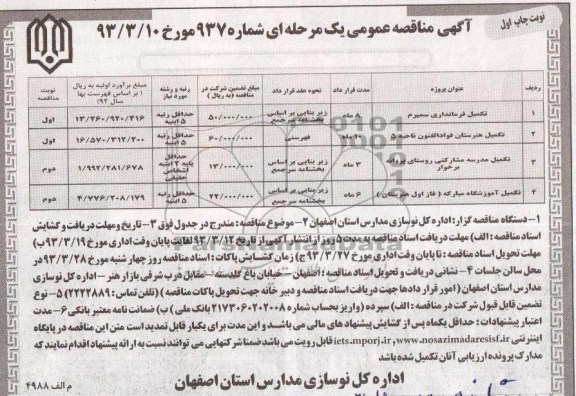 نوبت چاپ اول
آگهی مناقصه عمومی یک مرحله ای شماره ۹۳۷ مورخ ۹۳/۳/۱۰
ردیف عنوان پروژه مدت قرار داد نحوه عقد قرار داد مبلغ تضمین شرکت در مناقصه (به ریال) رتبه و رشته مورد نیاز مبلغ برآورد اولیه به ریال (بر اساس فهرست بها سال ۹۲) نوبت مناقصه
۱ تکمیل فرمانداری سمیرم ۸ ماه زیر بنایی بر اساس بخشنامه سرجمع ۵۰/۰۰۰/۰۰۰ حداقل رتبه ۵ ابنیه ۱۳/۲۶۰/۹۲۰/۴۱۶ اول
۲ تکمیل هنرستان فولادالفنون ناحیه ۵ ۱۰ ماه فهرستی ۶۰/۰۰۰/۰۰۰ حداقل رتبه ۵ ابنیه ۱۶/۵۷۰/۳۱۲/۲۰۰ اول
۳ تکمیل مدرسه مشارکتی روستای پروانه برخوار ۳ ماه زیر بنایی بر اساس بخشنامه سرجمع ۱۳/۰۰۰/۰۰۰ حداقل پایه ۲ ابنیه اشخاص حقیقی ۱/۹۹۲/۲۸۱/۶۷۸ دوم
۴ تکمیل آموزشگاه مبارکه (فاز اول هنرستان) ۶ ماه زیر بنایی بر اساس بخشنامه سرجمع ۲۲/۰۰۰/۰۰۰ حداقل رتبه ۵ ابنیه ۴/۷۷۶/۲۰۸/۱۷۹ دوم
۱- دستگاه مناقصه گزار: اداره کل نوسازی مدارس استان اصفهان ۲- موضوع مناقصه: مندرج در جدول فوق ۳- تاریخ و مهلت دریافت و گشایش
اسناد مناقصه: الف) مهلت دریافت اسناد مناقصه به مدت ۵ روز از انتشار آگهی از تاریخ ۹۳/۳/۱۲ لغایت پایان وقت اداری مورخ ۹۳/۳/۱۹ ب)
مهلت تحویل اسناد مناقصه: تا پایان وقت اداری مورخ ۹۳/۳/۲۷ ج) زمان گشایش پاکات: اسناد مناقصه روز چهار شنبه مورخ ۹۳/۳/۲۸ در
محل سالن جلسات ۴- نشانی دریافت و تحویل اسناد مناقصه: اصفهان - خیابان باغ گلدسته - مقابل درب شرقی بازار هنر - اداره کل نوسازی
مدارس استان اصفهان (امور قرار دادها جهت دریافت اسناد مناقصه و دبیر خانه جهت تحویل پاکات مناقصه) (تلفن تماس: ۲۲۲۲۸۸۹) ۵- نوع
تضمین قابل قبول شرکت در مناقصه: الف) سپرده (واریز بحساب شماره ۲۱۷۳۰۶۰۲۰۲۰۰۸ بانک ملی) ب) ضمانت نامه معتبر بانکی ۶- مدت
اعتبار پیشنهادات: حداقل یکماه پس از گشایش پیشنهاد های مالی می باشد و این مدت برای یکبار قابل تمدید است متن این مناقصه در پایگاه
اینترنتی iets.mporj.ir, www.nosazimadaresisf.ir قابل رویت می باشد ضمنا شرکتهایی می توانند نسبت به ارائه پیشنهاد اقدام نمایند که
مدارک پرونده ارزیابی آنان تکمیل شده باشد
اداره کل نوسازی مدارس استان اصفهان
م الف ۴۹۸۸